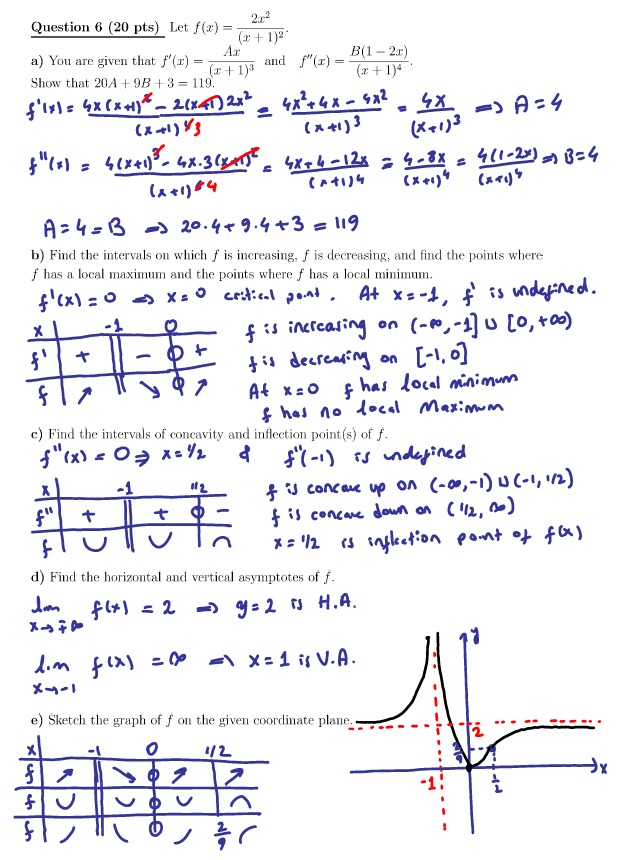 Question 6 (20 pts) Let f(x) = 2x²/(x + 1)².
a) You are given that f′(x) = Ax/(x + 1)³ and f″(x) = B(1 − 2x)/(x + 1)⁴.
Show that 20A + 9B + 3 = 119.
f'(x) = 4x(x+1)² − 2(x+1)2x² / (x+1)⁴3 = 4x²+4x − 4x² / (x+1)³ = 4x/(x+1)³ ⇒ A = 4
f"(x) = 4(x+1)³ − 4x.3(x+1)² / (x+1)⁶4 = 4x+4−12x / (x+1)4 = 4−8x / (x+1)⁴ = 4(1−2x)/(x+1)⁴ ⇒ B=4
A = 4 = B ⇒ 20.4 + 9.4 + 3 = 119
b) Find the intervals on which f is increasing, f is decreasing, and find the points where
f has a local maximum and the points where f has a local minimum.
f'(x) = 0 ⇒ x = 0 critical point. At x = -1, f' is undefined.
x -1 0
f' + − 0 +
f ↗ ↘ 0 ↗
f is increasing on (-∞, -1] ∪ [0, +∞)
f is decreasing on [-1, 0]
At x=0 f has local minimum
f has no local Maximum
c) Find the intervals of concavity and inflection point(s) of f.
f"(x) = 0 ⇒ x = 1/2 & f"(-1) is undefined
x -1 1/2
f" + + 0 −
f ∪ ∪ ∩
f is concave up on (-∞, -1) ∪ (-1, 1/2)
f is concave down on (1/2, ∞)
x = 1/2 is inflection point of f(x)
d) Find the horizontal and vertical asymptotes of f.
lim x→∓∞ f(x) = 2 ⇒ y = 2 is H.A.
lim x→-1 f(x) = ∞ ⇒ x = 1 is V.A.
e) Sketch the graph of f on the given coordinate plane.
x -1 0 1/2
f ↗ ↘ 0 ↗ ↗
f ∪ ∪ 0 ∪ ∩
f 0 2/9
y
2
2/9
x
-1
1/2